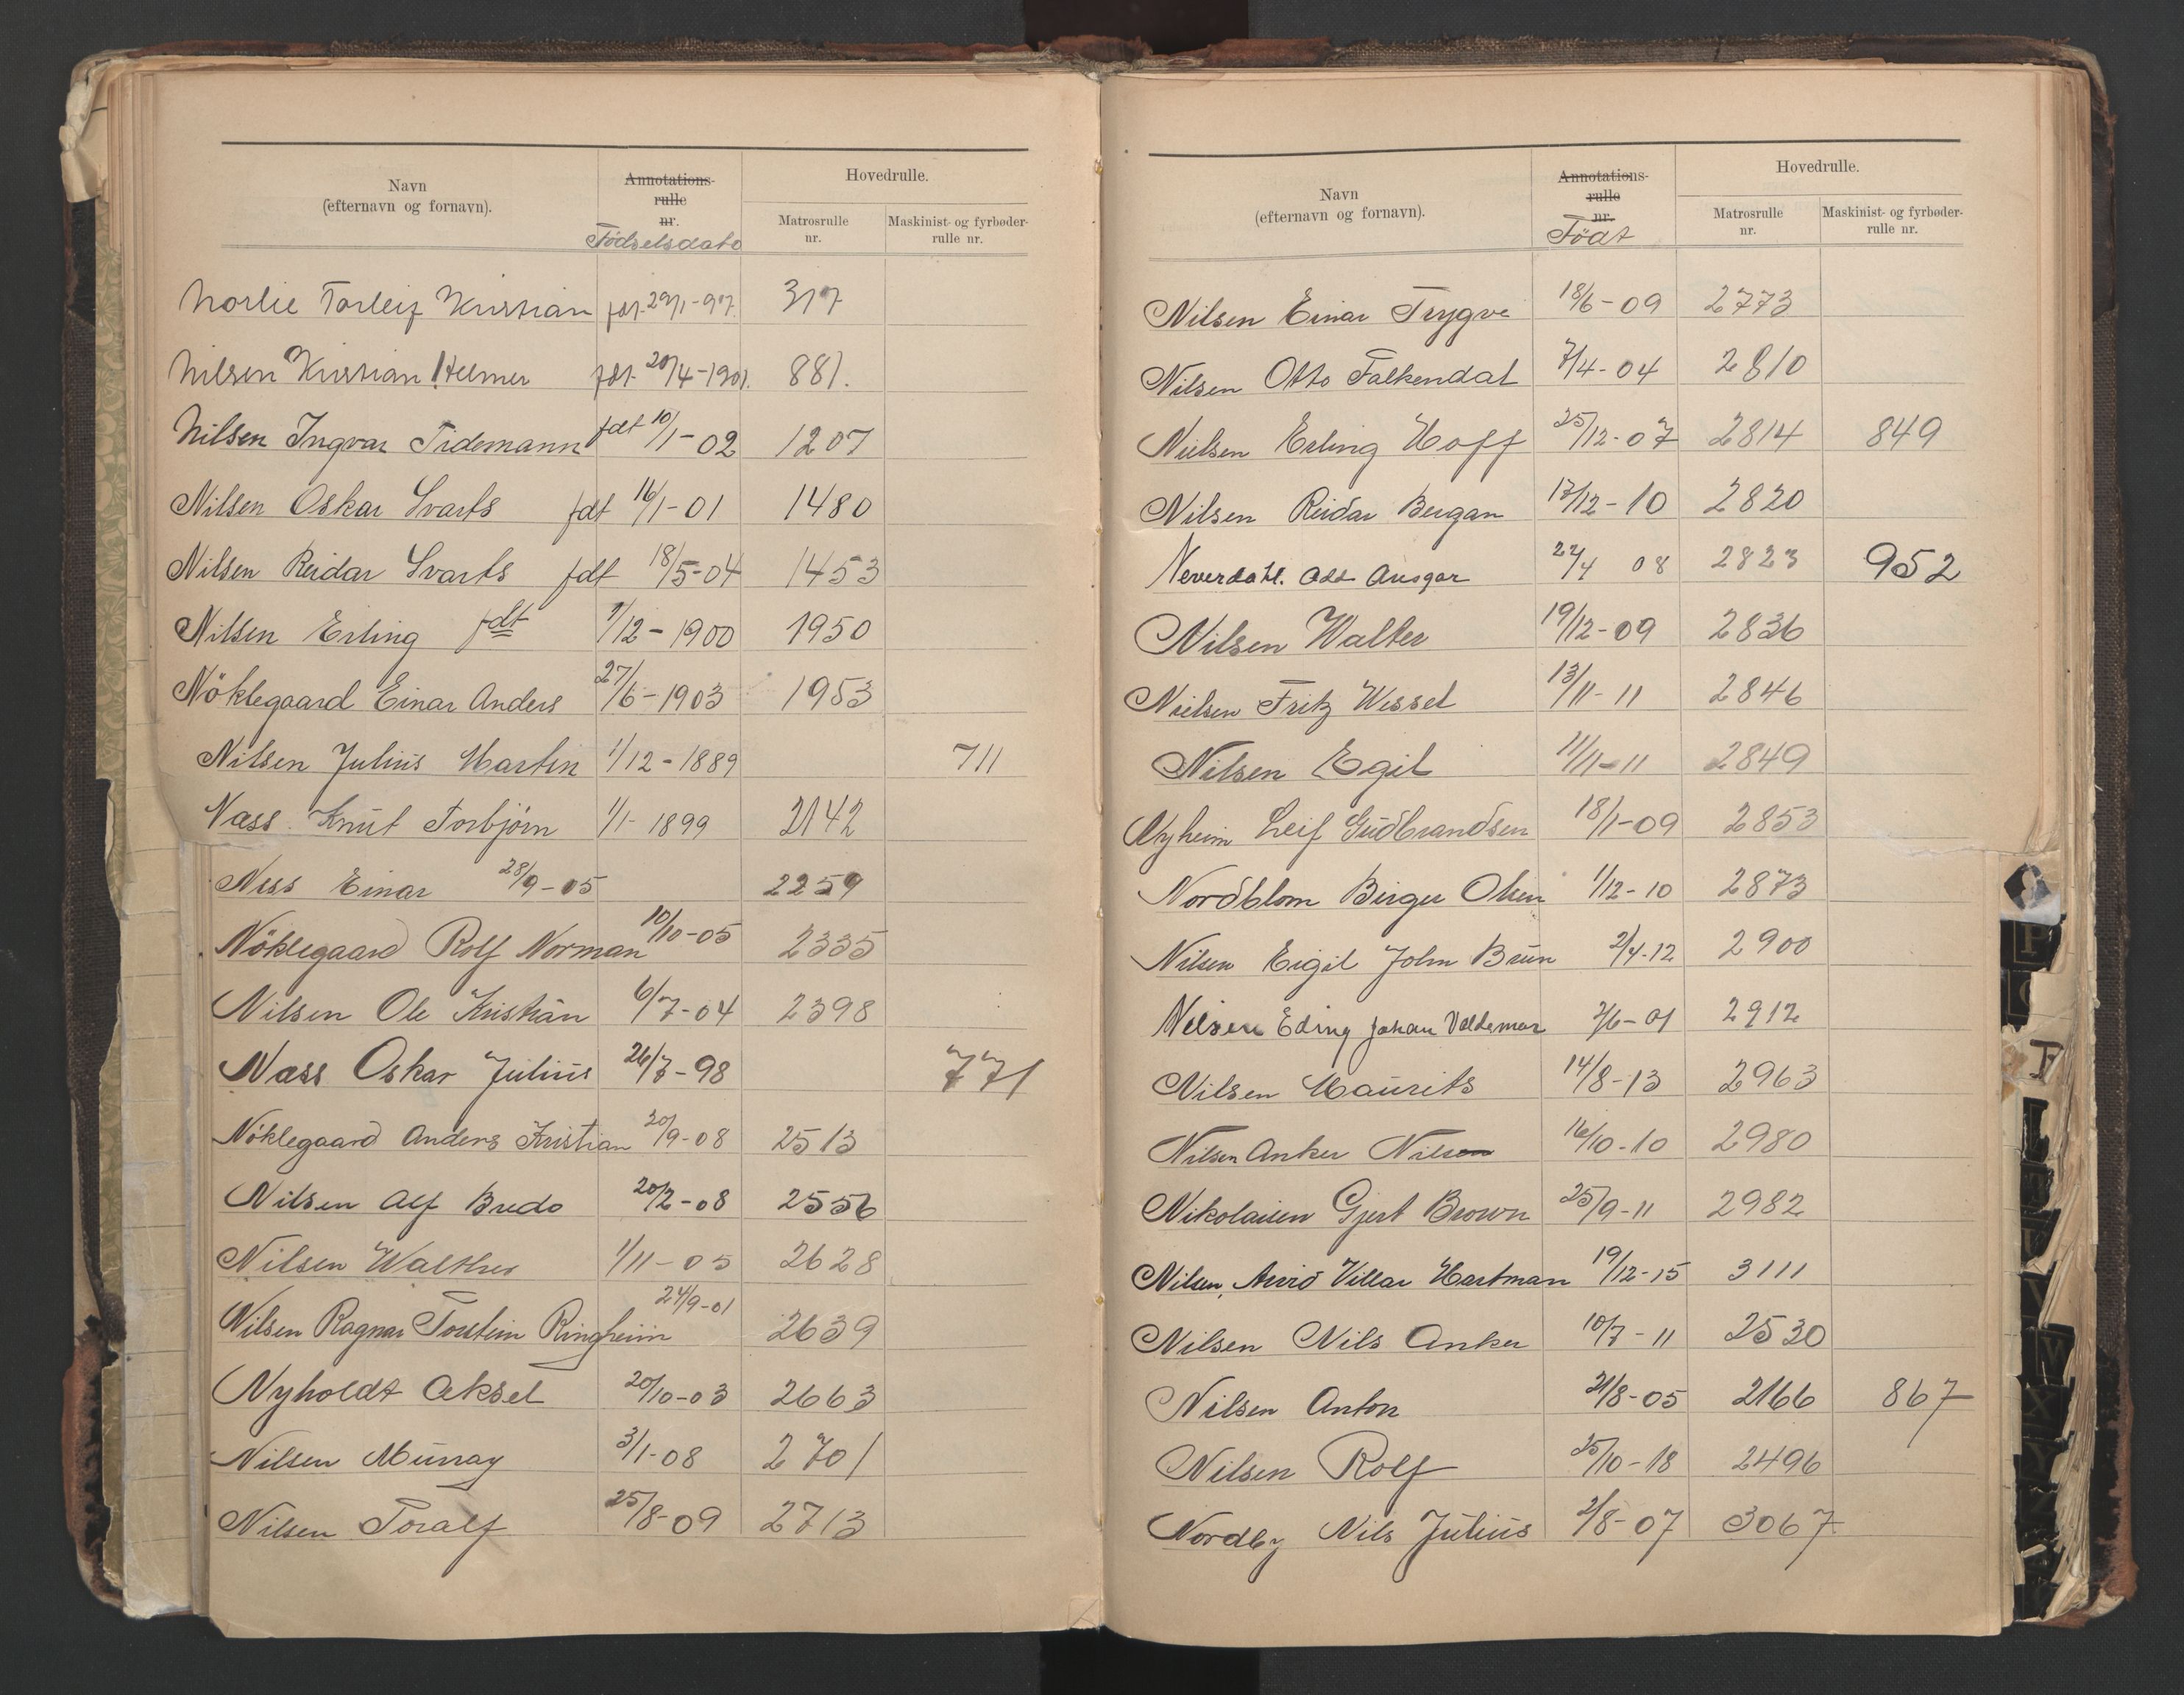 Navn
(efternavn og fornavn).
Annotations-
rulle
nr.
Fødselsdato
Hovedrulle.
Matrosrulle
nr.
Maskinist- og fyrbøder-
rulle nr.
Norlie Torleif Kristian fdt. 29/1-97. 317
Nilsen Kristian Helmer fdt. 20/4-1901. 881.
Nilsen Ingvar Tidemann fdt 10/1-02 1207
Nilsen Oskar Svarts fdt 16/1-01 1480
Nilsen Reidar Svarts fdt 18/5-04 1453
Nilsen Erling fdt 7/12-1900 1950
Nöklegaard Einar Anders 27/6-1903 1953
Nilsen Julius Martin 1/12-1889 711
Næss Knut Torbjörn 1/1-1899 2142
Ness Einar 28/9-05 2259
Nöklegaard Rolf Norman 10/10-05 2335
Nilsen Ole Kristian 6/7-04 2398
Næss Oskar Julius 26/7-98 771
Nöklegaard Anders Kristian 20/9-08 2513
Nilsen Alf Bredo 20/2-08 2556
Nilsen Walther 1/11-05 2628
Nilsen Ragnar Torstein Ringheim 24/9-01 2639
Nyholdt Aksel 20/10-03 2663
Nilsen Murray 3/1-08 2701
Nilsen Toralf 25/8-09 2713
Navn
(efternavn og fornavn).
Annotations-
rulle
nr.
Födt
Hovedrulle.
Matrosrulle
nr.
Maskinist- og fyrbøder-
rulle nr.
Nilsen Einar Trygve 18/6-09 2773
Nilsen Otto Falkendal 7/4-04 2810
Nielsen Erling Hoff 25/12-07 2814 849
Nilsen Reidar Bergan 17/12-10 2820
Neverdahl. Odd Ansgar 22/4 08 2823 952
Nilsen Walter 19/12-09 2836
Nielsen Fritz Wessel 13/11-11 2846
Nilsen Egil 11/11-11 2849
Nyheim Leif Gudbrandsen 18/1-09 2853
Nordblom Birger Olsen 1/12-10 2873
Nilsen Eigil John Brun 2/4-12 2900
Nilsen Eding Johan Valdemar 2/6-01 2912
Nilsen Maurits 14/8-13 2963
Nilsen Anker Nilsen 16/10-10 2980
Nikolaisen Gjert Brown 25/9-11 2982
Nilsen, Arvid Villar Hartman 19/12-15 3111
Nilsen Nils Anker 10/7-11 2530
Nilsen Anton 21/8-05 2166 867
Nilsen Rolf 25/10-18 2496
Nordby Nils Julius 2/8-07 3067